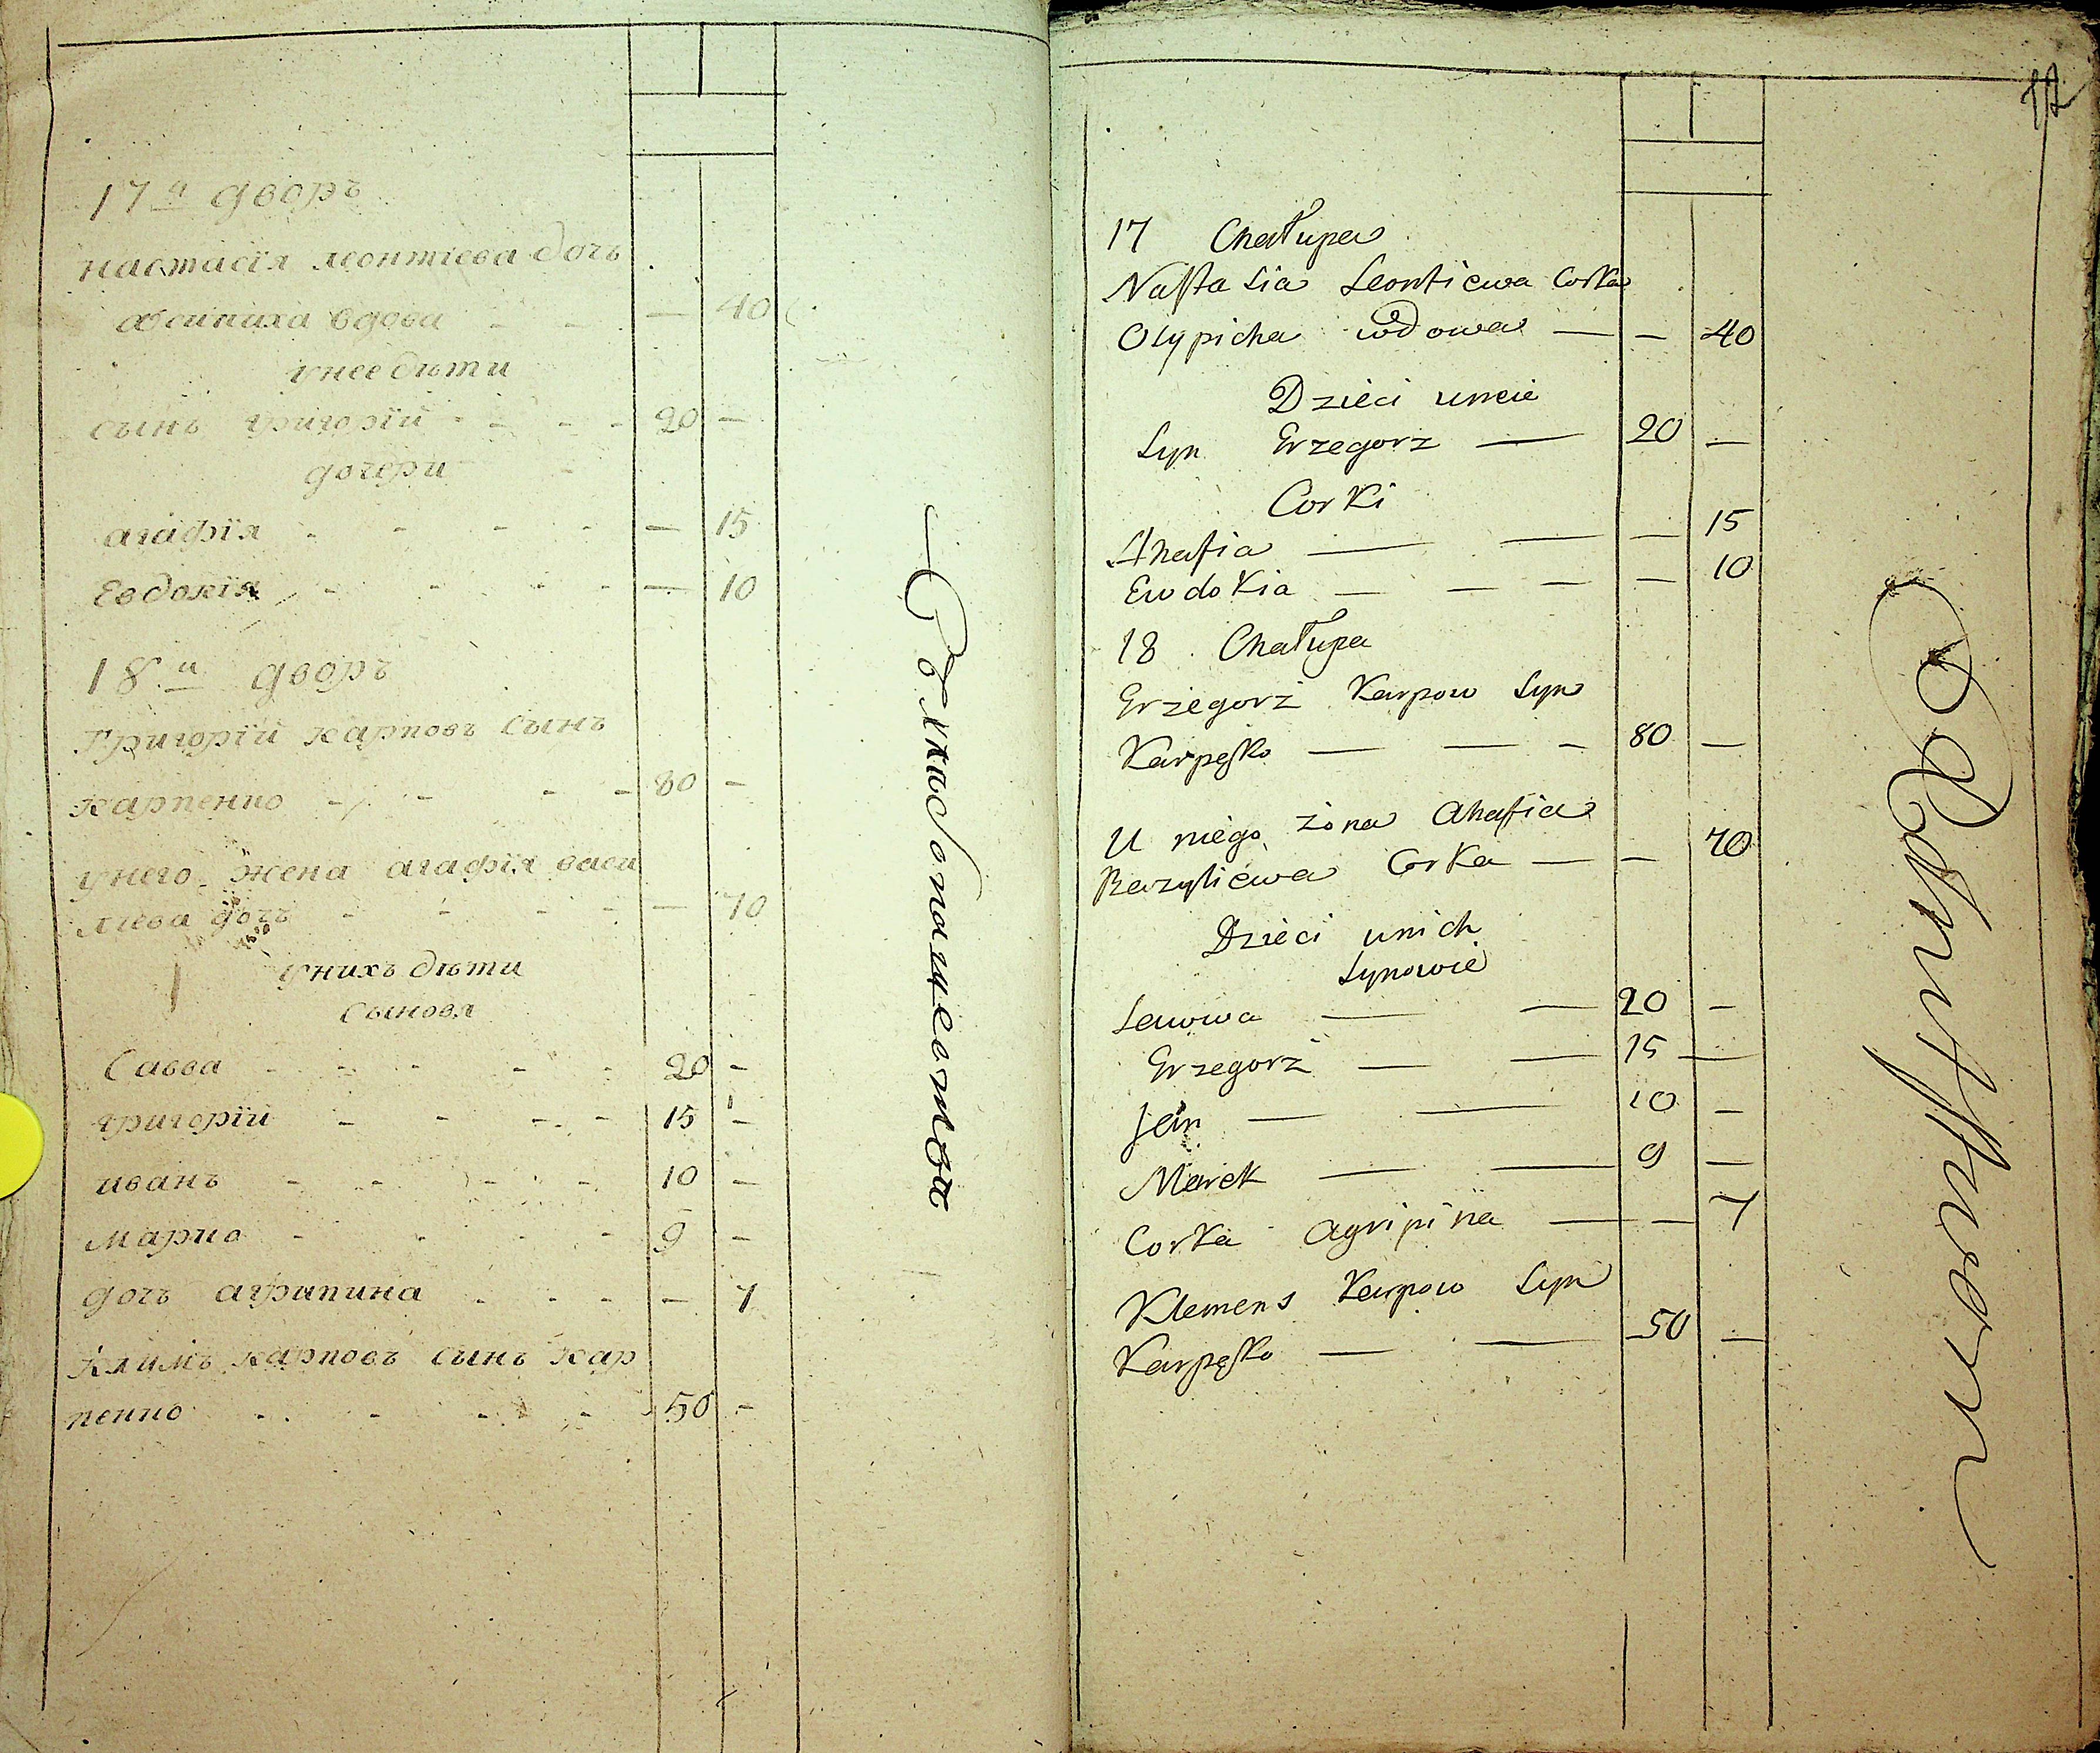 17й дворъ
настасія леонтіева дочь
осипиха вдова - - — 40
унее дѣти
сынъ григорій - - - - 20 —
дочери
агафія - - - - — 15
Евдокія - - - - — 10
18й дворъ
Григорій карповъ сынъ
карпенко - - - - 80 —
унего жена агафія васи
лиева дочь - - - - — 70
унихъ дѣти
сыновя
Савва - - - - - 20 —
григорій - - - - 15 —
иванъ - - - - 10 —
марко - - - - 9 —
дочь агрипина - - - — 7
Климъ карповъ сынъ кар
пенко - - - - - 50 —
17 Chałupa
Nastasia Leontiewa Corka
Osypicha wdowa — — 40
Dzieci uneie
Syn Grzegorz — 20 —
Corki
Ahafia — — — 15
Ewdokia — — — — 10
18 Chałupa
Grzegorz Karpow Syn
Karpęko — — - 80 —
U niego żona Ahafia
Bazyliewa Corka — — 70
Dzieci unich
Synowie
Sawwa — — 20 —
Grzegorz — — 15 —
Jan — — 10 —
Marek — — 9 —
Corka Agripina — — 7
Klemens Karpow Syn
Karpęko — — 50 —